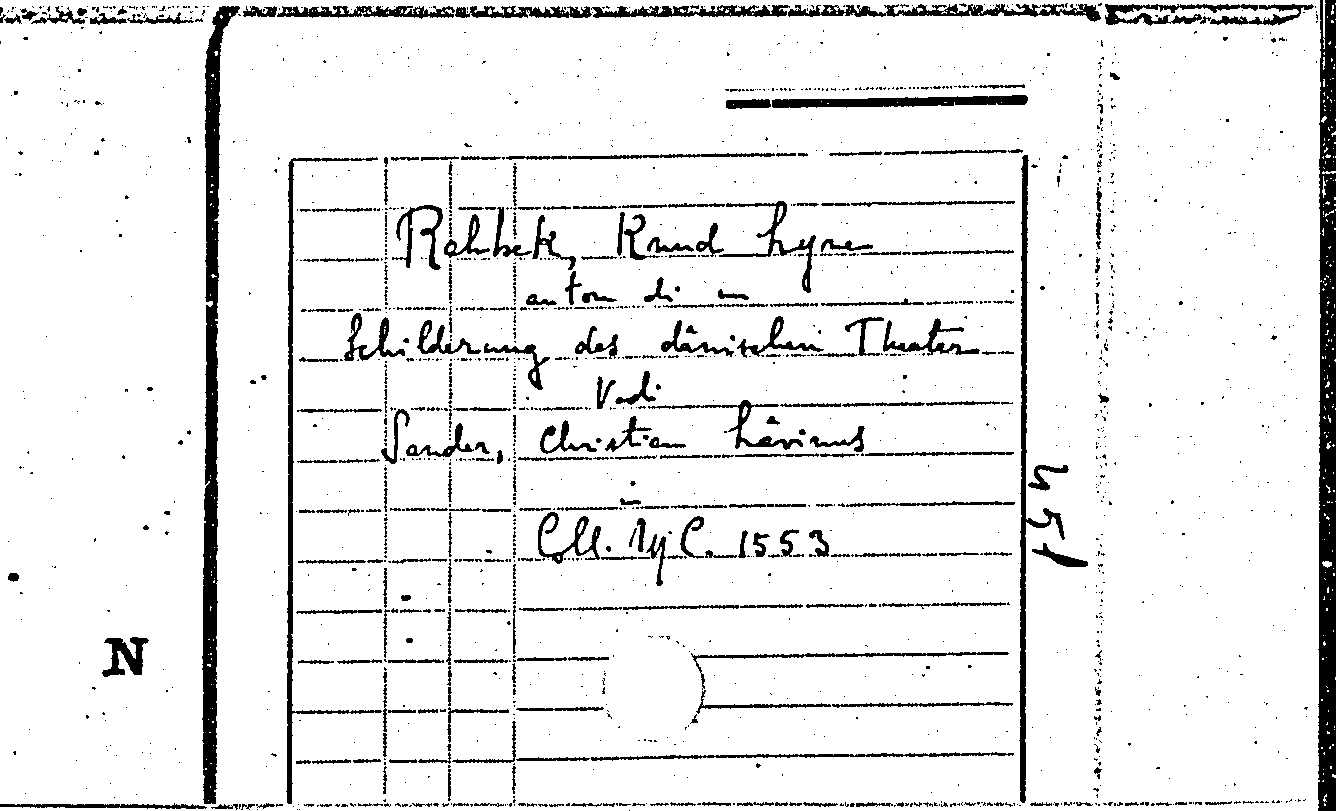 Rahbek, Knud Lyne
autore di un
Schilderung des dänischen Theater
Vedi
Sander, Christian Lävinus
in
Coll. Ny C. 1553
451
N